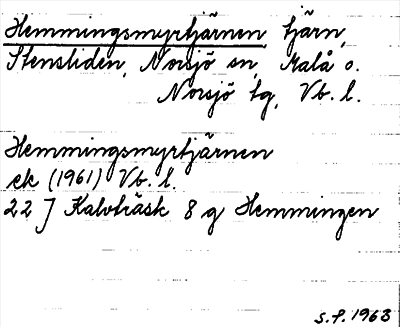 Hemmingsmyrtjärnen tjärn,
Stensliden, Norsjö sn, Malå o.
Norsjö tg, Vb. l.
Hemmingsmyrtjärnen
ek (1961) Vb. l.
22 J Kalvträsk 8 g Hemmingen
S.P. 1963